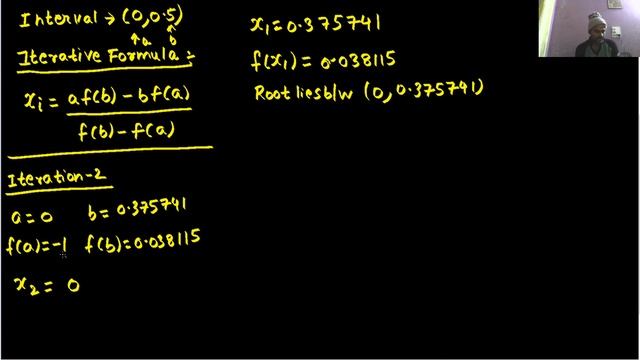 Interval → (0,0.5)
↑a ↑b
Iterative Formula :-
xi = af(b) - bf(a)
f(b) - f(a)
Iteration-2
a=0 b=0.375741
f(a)=-1 f(b)=0.038115
x2 = 0
x1=0.375741
f(x1) = 0.038115
Root lies b/w (0,0.375741)